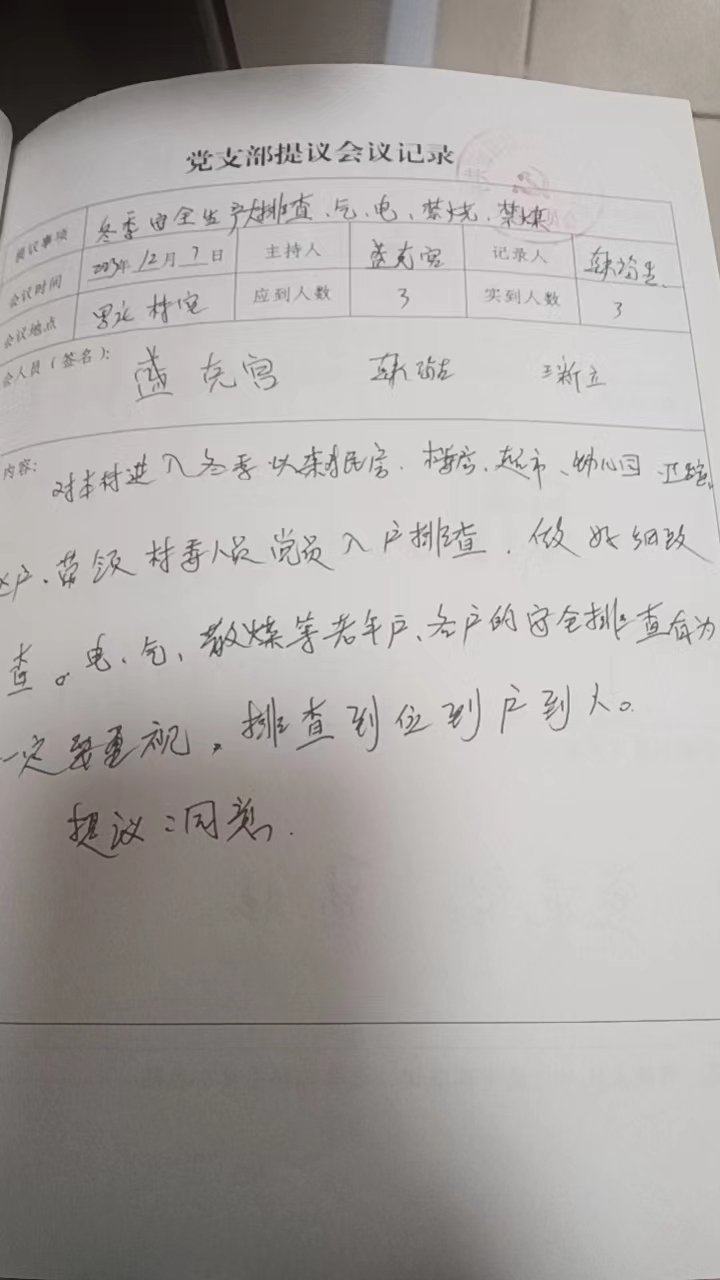 党支部提议会议记录
提议事项 冬季安全生产大排查、气、电、禁烧、禁煤
会议时间 2023年12月7日 主持人 盖克宫 记录人
会议地点 村室 应到人数 3 实到人数 3
会人员（签名）： 盖克宫 王新立
内容： 对本村进入冬季以来 民房、楼房、超市、幼儿园
户、带领村委人员党员入户排查，做好细致
查。电、气、散煤等老年户、各户的安全排查
一定要重视，排查到位到户到人。
提议：同意.